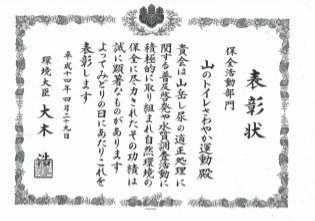 表彰状
保全活動部門
山のトイレさわやか運動殿
貴会は山岳し尿の適正処理に
関する普及啓発や水質調査活動に
積極的に取り組まれ自然環境の
保全に尽力されたその功績は
誠に顕著なものがあります
よってみどりの日にあたりこれを
表彰します
平成十四年四月二十九日
環境大臣 大木 浩